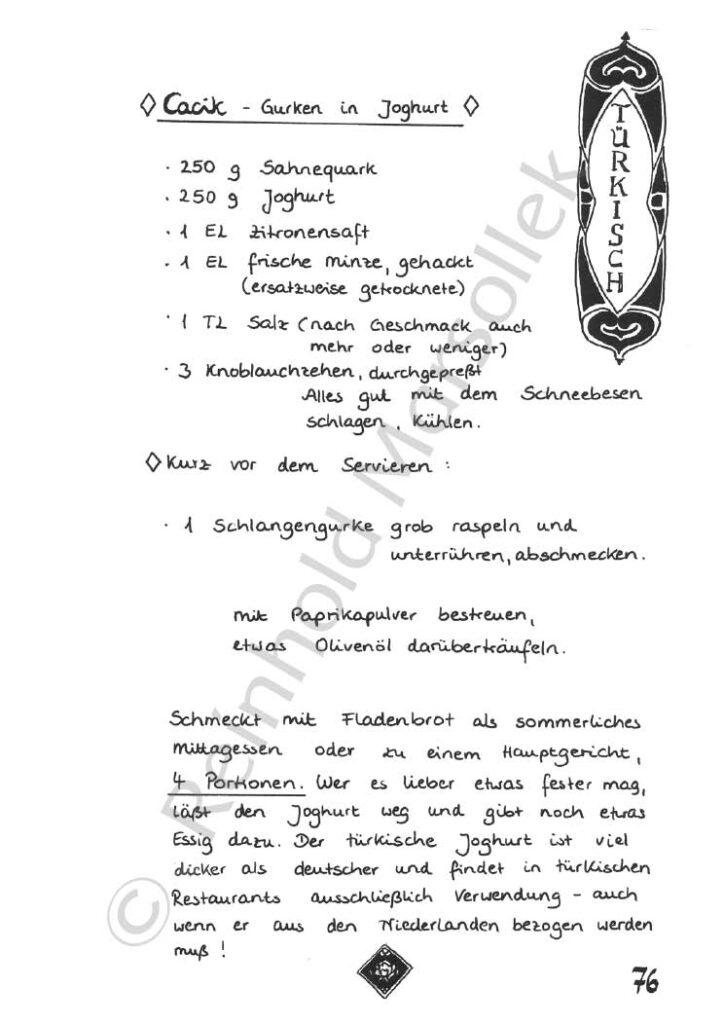 ◊ Cacik - Gurken in Joghurt ◊
TÜRKISCH
· 250 g Sahnequark
· 250 g Joghurt
· 1 EL Zitronensaft
· 1 EL frische Minze, gehackt
(ersatzweise getrocknete)
· 1 TL Salz (nach Geschmack auch
mehr oder weniger)
· 3 Knoblauchzehen, durchgepreßt
Alles gut mit dem Schneebesen
schlagen, Kühlen.
◊ Kurz vor dem Servieren :
· 1 Schlangengurke grob raspeln und
unterrühren, abschmecken.
mit Paprikapulver bestreuen,
etwas Olivenöl darüberträufeln.
Schmeckt mit Fladenbrot als sommerliches
Mittagessen oder zu einem Hauptgericht,
4 Portionen. Wer es lieber etwas fester mag,
läßt den Joghurt weg und gibt noch etwas
Essig dazu. Der türkische Joghurt ist viel
dicker als deutscher und findet in türkischen
Restaurants ausschließlich Verwendung - auch
wenn er aus den Niederlanden bezogen werden
muß !
76
© Reinhold Marsollek